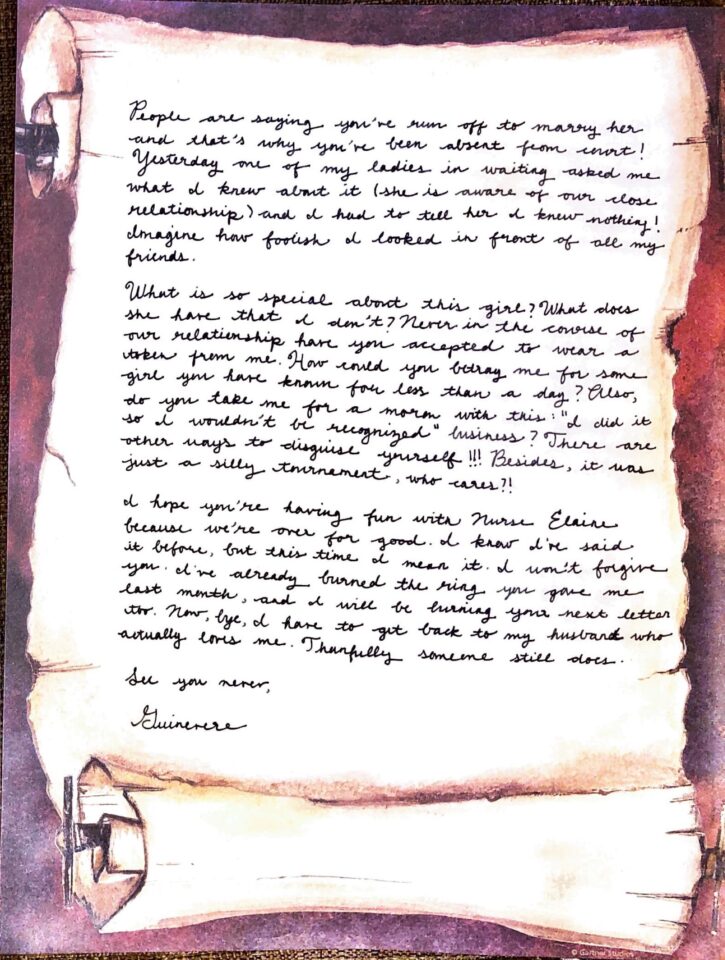 People are saying you've run off to marry her
and that's why you've been absent from court!
Yesterday one of my ladies in waiting asked me
what I knew about it (she is aware of our close
relationship) and I had to tell her I knew nothing!
Imagine how foolish I looked in front of all my
friends.
What is so special about this girl? What does
she have that I don't? Never in the course of
our relationship have you accepted to wear a
token from me. How could you betray me for some
girl you have known for less than a day? Also,
do you take me for a moron with this: "I did it
so I wouldn't be recognized" business? There are
other ways to disguise yourself!!! Besides, it was
just a silly tournament, who cares?!
I hope you're having fun with Nurse Elaine
because we're over for good. I know I've said
it before, but this time I mean it. I won't forgive
you. I've already burned the ring you gave me
last month, and I will be burning your next letter
too. Now, bye, I have to get back to my husband who
actually loves me. Thankfully someone still does.
See you never,
Guinevere
© Gartner Studios